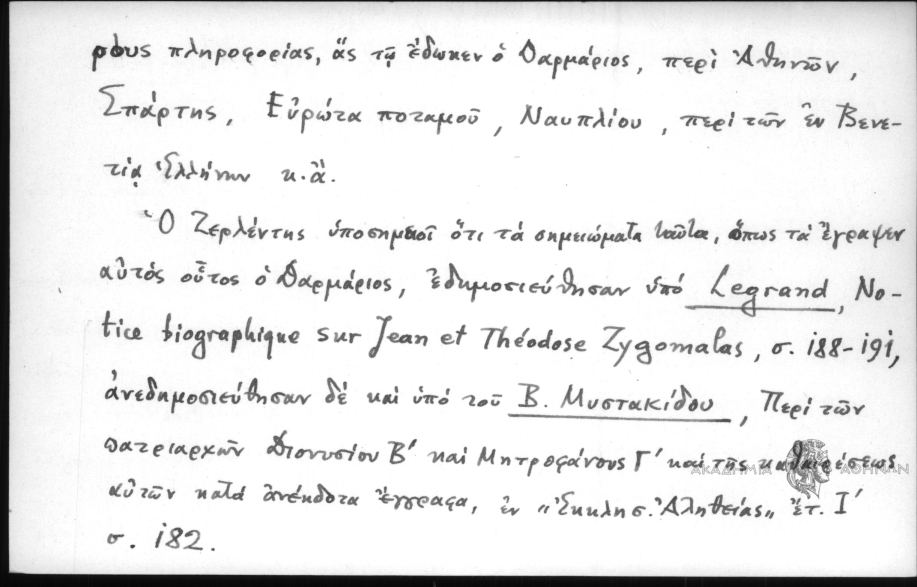 ρους πληροφορίας, ἃς τῷ ἔδωκεν ὁ Δαρμάριος, περὶ Ἀθηνῶν,
Σπάρτης, Εὐρώτα ποταμοῦ, Ναυπλίου, περὶ τῶν ἐν Βενε-
τίᾳ Ἑλλήνων κ.ἄ.
Ὁ Ζερλέντης ὑποσημειοῖ ὅτι τὰ σημειώματα ταῦτα, ὅπως τὰ ἔγραψεν
αὐτὸς οὗτος ὁ Δαρμάριος, ἐδημοσιεύθησαν ὑπό Legrand, No-
tice biographique sur Jean et Théodose Zygomalas, σ. 188-191,
ἀνεδημοσιεύθησαν δέ καὶ ὑπό τοῦ Β. Μυστακίδου, Περί τῶν
πατριαρχῶν Διονυσίου Β' καὶ Μητροφάνους Γ' καί τῆς καθαιρέσεως
αὐτῶν κατά ἀνέκδοτα ἔγγραφα, ἐν "Ἐκκλησ. Ἀληθείας" ἔτ. Ι'
σ. 182.
ΑΚΑΔΗΜΙΑ ΑΘΗΝΩΝ